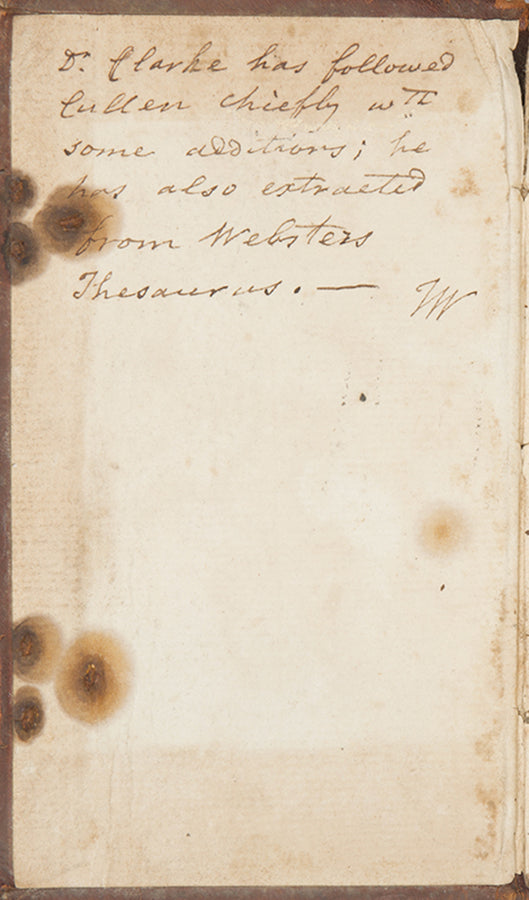 Dr. Clarke has followed
Cullen chiefly wth
some additions; he
has also extracted
from Websters
Thesaurus. — TW